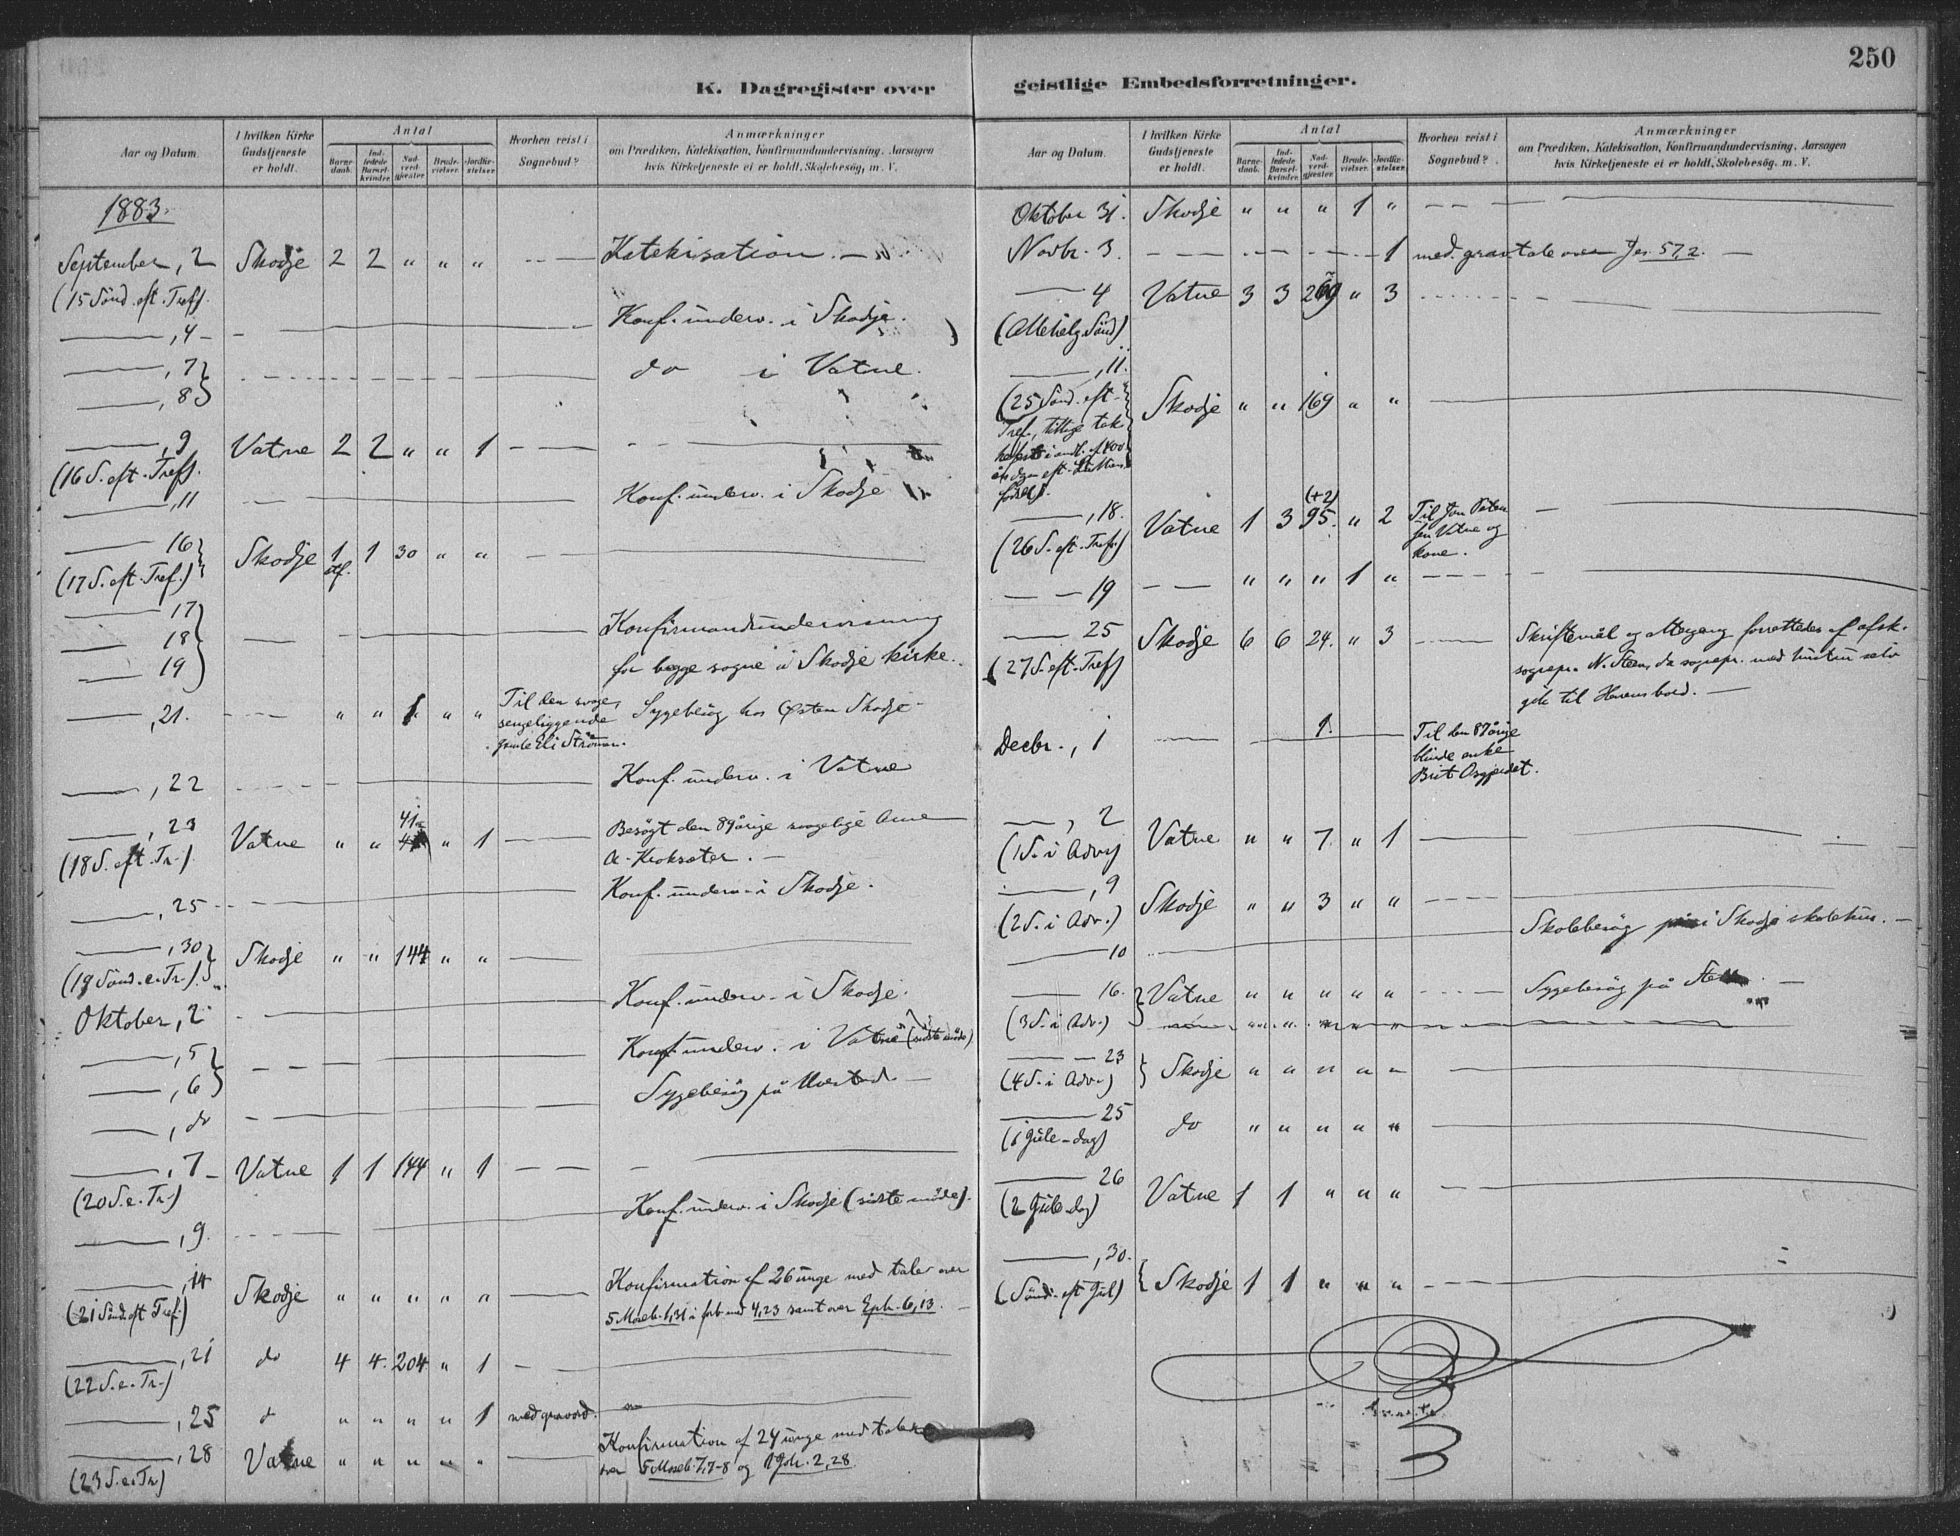 250
K. Dagregister over geistlige Embedsforretninger.
Aar og Datum.
I hvilken Kirke Gudstjeneste er holdt.
Antal
Barnedaab.
Indledede Barselkvinder.
Nadverdgjester.
Brudevielser.
Jordfæstelser.
Hvorhen reist i Sognebud?
Anmærkninger
om Prædiken, Katekisation, Konfirmandundervisning, Aarsagen
hvis Kirketjeneste ei er holdt, Skolebesøg, m. V.
1883.
September, 2 Skodje 2 2 " " " Katekisation.
(15 Sönd. eft. Tref).
, 4 Konf. underv. i Skodje.
, 7 do i Vatne.
, 8
, 9 Vatne 2 2 " " 1
(16 S. eft. Tref).
, 11 Konf. underv. i Skodje
16 Skodje 1 1 30 " "
(17 S. eft. Tref.)
17 Konfirmandundervisning
18 for begge sogne i Skodje kirke.
19
, 21. " " 1 " " Til den svage, sengeliggende Eli Strömm. Sygebesög hos Østen Skodje
, 22 Konf. underv. i Vatne
, 23 Vatne " " 41 " 1 Besögt den 89årige svagelige Anne
(18 S. eft. Tr.) A. Kroksæter.
, 25 Konf. underv. i Skodje.
, 30 Skodje " " 144 " "
(19 Sönd. e. Tr.)
Oktober, 2 Konf. underv. i Skodje.
, 5 Konf. underv. i Vatne (sidste möde)
, 6
, do Sygebesög på
, 7 Vatne 1 1 144 " 1
(20 S. e. Tr.)
, 9. Konf. underv. i Skodje (sidste möde).
, 14 Skodje " " " " " Konfirmation af 26 unge med taler over
(21 Sönd. eft Tref.) 5 Moseb. 1,31 i forb. med 4,23 samt over Eph. 6,13.
, 21 do 4 4 204 " 1
(22 S. e. Tr.)
, 25 d " " " " 1 med gravord.
, 28 Vatne " " " " " Konfirmation af 24 unge med taler
(23 S. e. Tr.) over 5 Moseb. 7,7-8 og 1 Joh. 2,28.
Aar og Datum.
I hvilken Kirke Gudstjeneste er holdt.
Antal
Barnedaab.
Indledede Barselkvinder.
Nadverdgjester.
Brudevielser.
Jordfæstelser.
Hvorhen reist i Sognebud?
Anmærkninger
om Prædiken, Katekisation, Konfirmandundervisning, Aarsagen
hvis Kirketjeneste ei er holdt, Skolebesøg, m. V.
Oktober 31. Skodje " " " 1 "
Novbr. 3. 1 med gravtale over Jes. 57,2.
4 Vatne 3 3 " 3
(Allehelg. Sönd)
, 11. Skodje " " 169 " "
(25 Sönd. eft.
Tref., tillige tak
i anl. af 400
års dagen eft. Luthers
födsel).
, 18. Vatne 1 3 (+2) 95. " 2 Til Jon
(26 S. eft. Tref.) Vatne og kone.
19 " " " 1 "
25 Skodje 6 6 24. " 3 Skriftemål og altergang forrettedes af afsk.
(27 S. eft. Tref) sognepr. N. Steen, da sognepr. med hustru selv
gik til Herrens bord.
Decbr., 1 1. Til den 87årige blinde enke Brit
, 2 Vatne " " 7. " 1
(1 S. i Adv.)
, 9 Skodje " " 3 " "
(2 S. i Adv.)
10 Skolebesög i Skodje skolehus.
16. Vatne " " " " " Sygebesög på
(3 S. i Adv.)
23 Skodje " " " " "
(4 S. i Adv.)
25 do " " " " "
(1 Jule-dag)
26 Vatne 1 1 " " "
(2 Jule-dag)
, 30. Skodje 1 1 " " "
(Sönd. eft Jul)